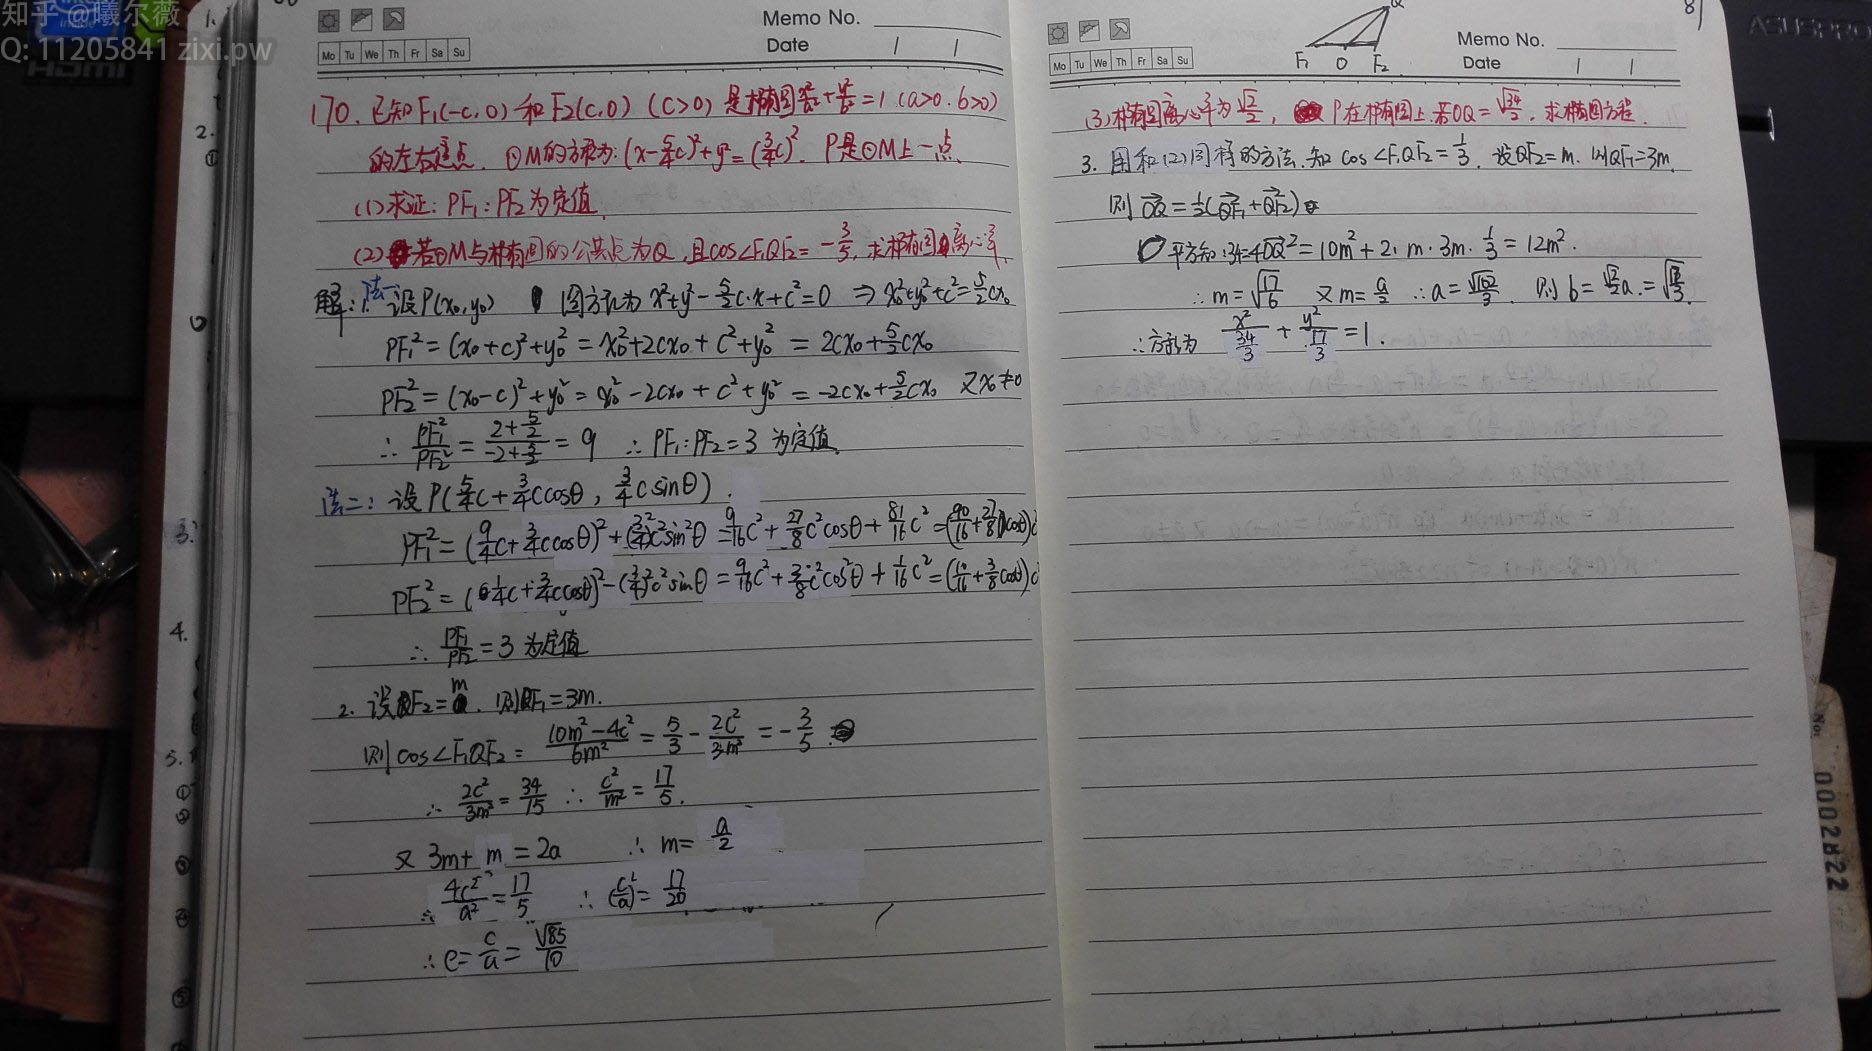 知乎 @曦尔薇
Q: 11205841 zixi.pw
HDMI
ASUSPRO
Memo No.
Date
Mo Tu We Th Fr Sa Su
170. 已知F₁(-c,0)和F₂(c,0) (c>0) 是椭圆x²/a²+y²/b²=1 (a>0.b>0)
的左右焦点. ⊙M的方程为:(x-5/4c)²+y²=(3/4c)². P是⊙M上一点.
(1)求证: PF₁:PF₂为定值.
(2) 若⊙M与椭圆的公共点为Q,且cos∠F₁QF₂=-3/5,求椭圆离心率.
解:1. 法一 设P(x₀,y₀) 圆方程为 x²+y²-5/2c·x+c²=0 ⇒ x₀²+y₀²+c²=5/2cx₀
PF₁²=(x₀+c)²+y₀²=x₀²+2cx₀+c²+y₀²=2cx₀+5/2cx₀
PF₂²=(x₀-c)²+y₀²=x₀²-2cx₀+c²+y₀²=-2cx₀+5/2cx₀ 又x₀≠0
∴ PF₁²/PF₂²=(2+5/2)/(-2+5/2)=9 ∴ PF₁:PF₂=3 为定值.
法二: 设P(5/4c+3/4ccosθ, 3/4csinθ).
PF₁²=(9/4c+3/4ccosθ)²+(3/4)²c²sin²θ=9/16c²+27/8c²cosθ+81/16c²=(90/16+27/8cosθ)c
PF₂²=(1/4c+3/4ccosθ)²-(3/4)²c²sinθ=9/16c²+3/8c²cos²θ+1/16c²=(10/16+3/8cosθ)c
∴ PF₁/PF₂=3 为定值
2. 设QF₂=m. 则QF₁=3m.
则cos∠F₁QF₂=(10m²-4c²)/6m²=5/3-2c²/3m²=-3/5.
∴ 2c²/3m²=34/15 ∴ c²/m²=17/5.
又 3m+m=2a ∴ m=a/2
∴ 4c²/a²=17/5 ∴ (c/a)²=17/20
∴ e=c/a=√85/10
81
Q
F₁ O F₂
Memo No.
Date
Mo Tu We Th Fr Sa Su
(3)椭圆离心率为√2/2, P在椭圆上.若OQ=√34/2,求椭圆方程.
3. 用和(2)同样的方法.知 cos∠F₁QF₂=1/3. 设QF₂=m.则QF₁=3m.
则 OQ=1/2(QF₁+QF₂)
平方知:34=4OQ²=10m²+2·m·3m·1/3=12m².
∴ m=√17/6 又m=a/2 ∴ a=√102/3. 则b=√2/2a.
∴ 方程为 x²/(34/3)+y²/(17/3)=1.
2.
①
3.
4.
5.
①
No.
0002822